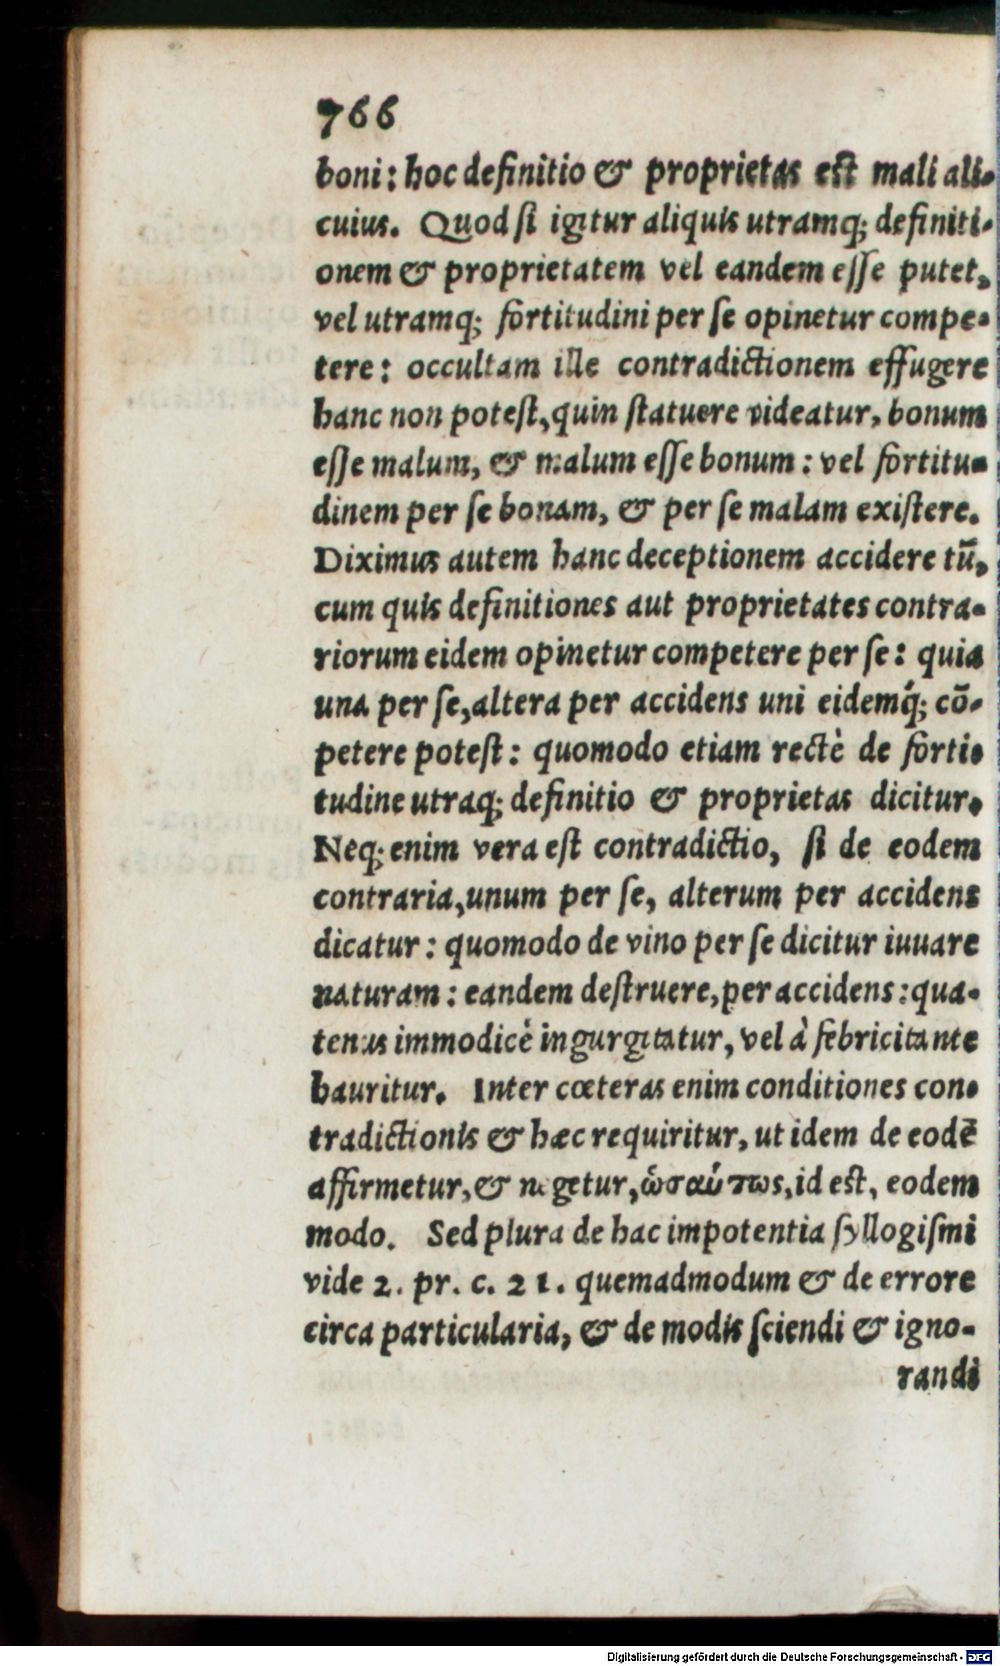 766
boni: hoc definitio & proprietas est mali ali-
cuius. Quod si igitur aliquis utramq; definiti-
onem & proprietatem vel eandem esse putet,
vel utramq; fortitudini per se opinetur compe-
tere: occultam ille contradictionem effugere
hanc non potest, quin statuere videatur, bonum
esse malum, & malum esse bonum: vel fortitu-
dinem per se bonam, & per se malam existere.
Diximus autem hanc deceptionem accidere tū,
cum quis definitiones aut proprietates contra-
riorum eidem opinetur competere per se: quia
una per se, altera per accidens uni eidemq́; cō-
petere potest: quomodo etiam rectè de forti-
tudine utraq; definitio & proprietas dicitur.
Neq; enim vera est contradictio, si de eodem
contraria, unum per se, alterum per accidens
dicatur: quomodo de vino per se dicitur iuuare
naturam: eandem destruere, per accidens: qua-
tenus immodicè ingurgitatur, vel à febricitante
hauritur. Inter cœteras enim conditiones con-
tradictionis & hæc requiritur, ut idem de eodē
affirmetur, & negetur, ὡσαύτως, id est, eodem
modo. Sed plura de hac impotentia syllogismi
vide 2. pr. c. 21. quemadmodum & de errore
circa particularia, & de modis sciendi & igno-
randi
Digitalisierung gefördert durch die Deutsche Forschungsgemeinschaft - DFG